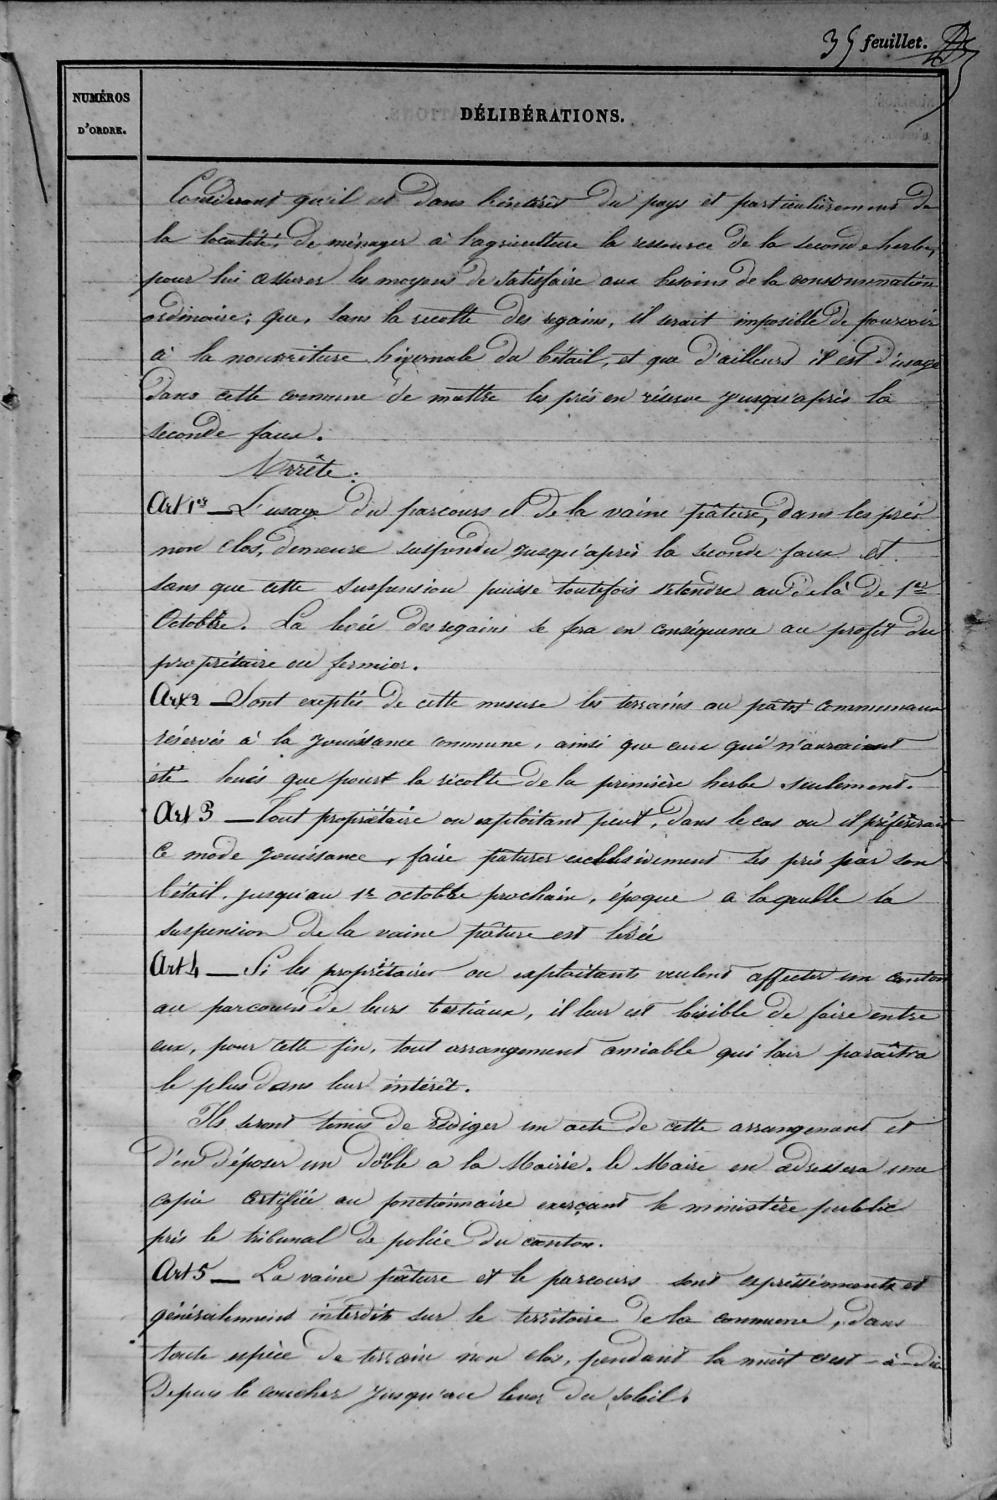 35 feuillet.
NUMÉROS
D'ORDRE.
DÉLIBÉRATIONS.
Considerant qu'il est dans l'intérêt du pays et particulièrement de
la localité, de ménager à l'agriculture la ressource de la seconde herbe,
pour lui assurer les moyens de satisfaire aux besoins de la consommation
ordinaire; que, sans la recolte des regains, il serait imposible de pourvoir
à la nourriture hivernale du bétail, et que d'ailleurs il est d'usage
dans cette commune de mettre les prés en réserve jusqu'après la
seconde faux.
Arrête.
Art 1er — L'usage du parcours et de la vaine pâture, dans les prés
non clos, demeure suspendu jusqu'après la seconde faux et
sans que cette suspension puisse toutefois s'etendre au delà de 1er
Octobre. La levée des regains se fera en conséquence au profit du
propriétaire ou fermier.
Art 2 — Sont exeptés de cette mesure les terrains ou pâtis communaux
réservés à la jouissance commune, ainsi que ceux qui n'auraient
été loués que pour la récolte de la première herbe seulement.
Art 3 — Tout propriétaire ou exploitant peut, dans le cas ou il préférerait
ce mode jouissance, faire paturer exclusivement ses prés par son
bétail, jusqu'au 1er octobre prochain, époque a laquelle la
suspension de la vaine pâture est levée
Art 4 — Si les propriétaires ou exploitants veulent affecter un canton
au parcours de leurs bestiaux, il leur est loisible de faire entre
eux, pour cette fin, tout arrangement amiable qui leur paraîtra
le plus dans leur intérêt.
Ils seront tenus de rédiger un acte de cette arrangement et
d'en déposer un double a la Mairie. le Maire en adressera une
copie certifiée au fonctionnaire exerçant le ministère public
près le tribunal de police du canton.
Art 5 — La vaine pâture et le parcours sont expressément et
généralement interdits sur le territoire de la commune, dans
toute espèce de terrain non clos, pendant la nuit c'est-à-dire
depuis le coucher jusqu'au lever du soleil.